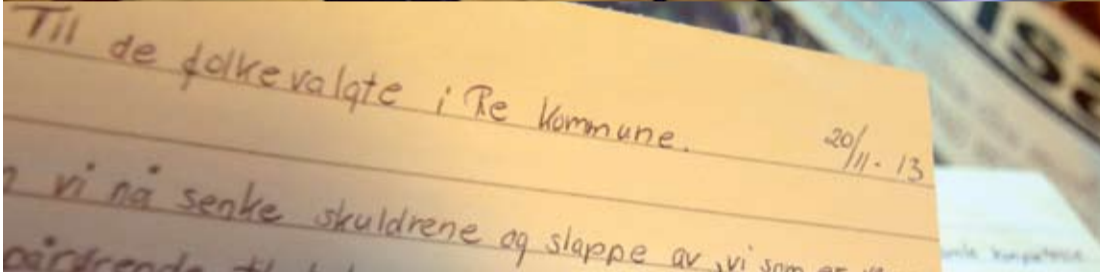 Til de folkevalgte i Re Kommune.
20/11. 13
vi nå senke skuldrene og slappe av, vi som er
pårørende til